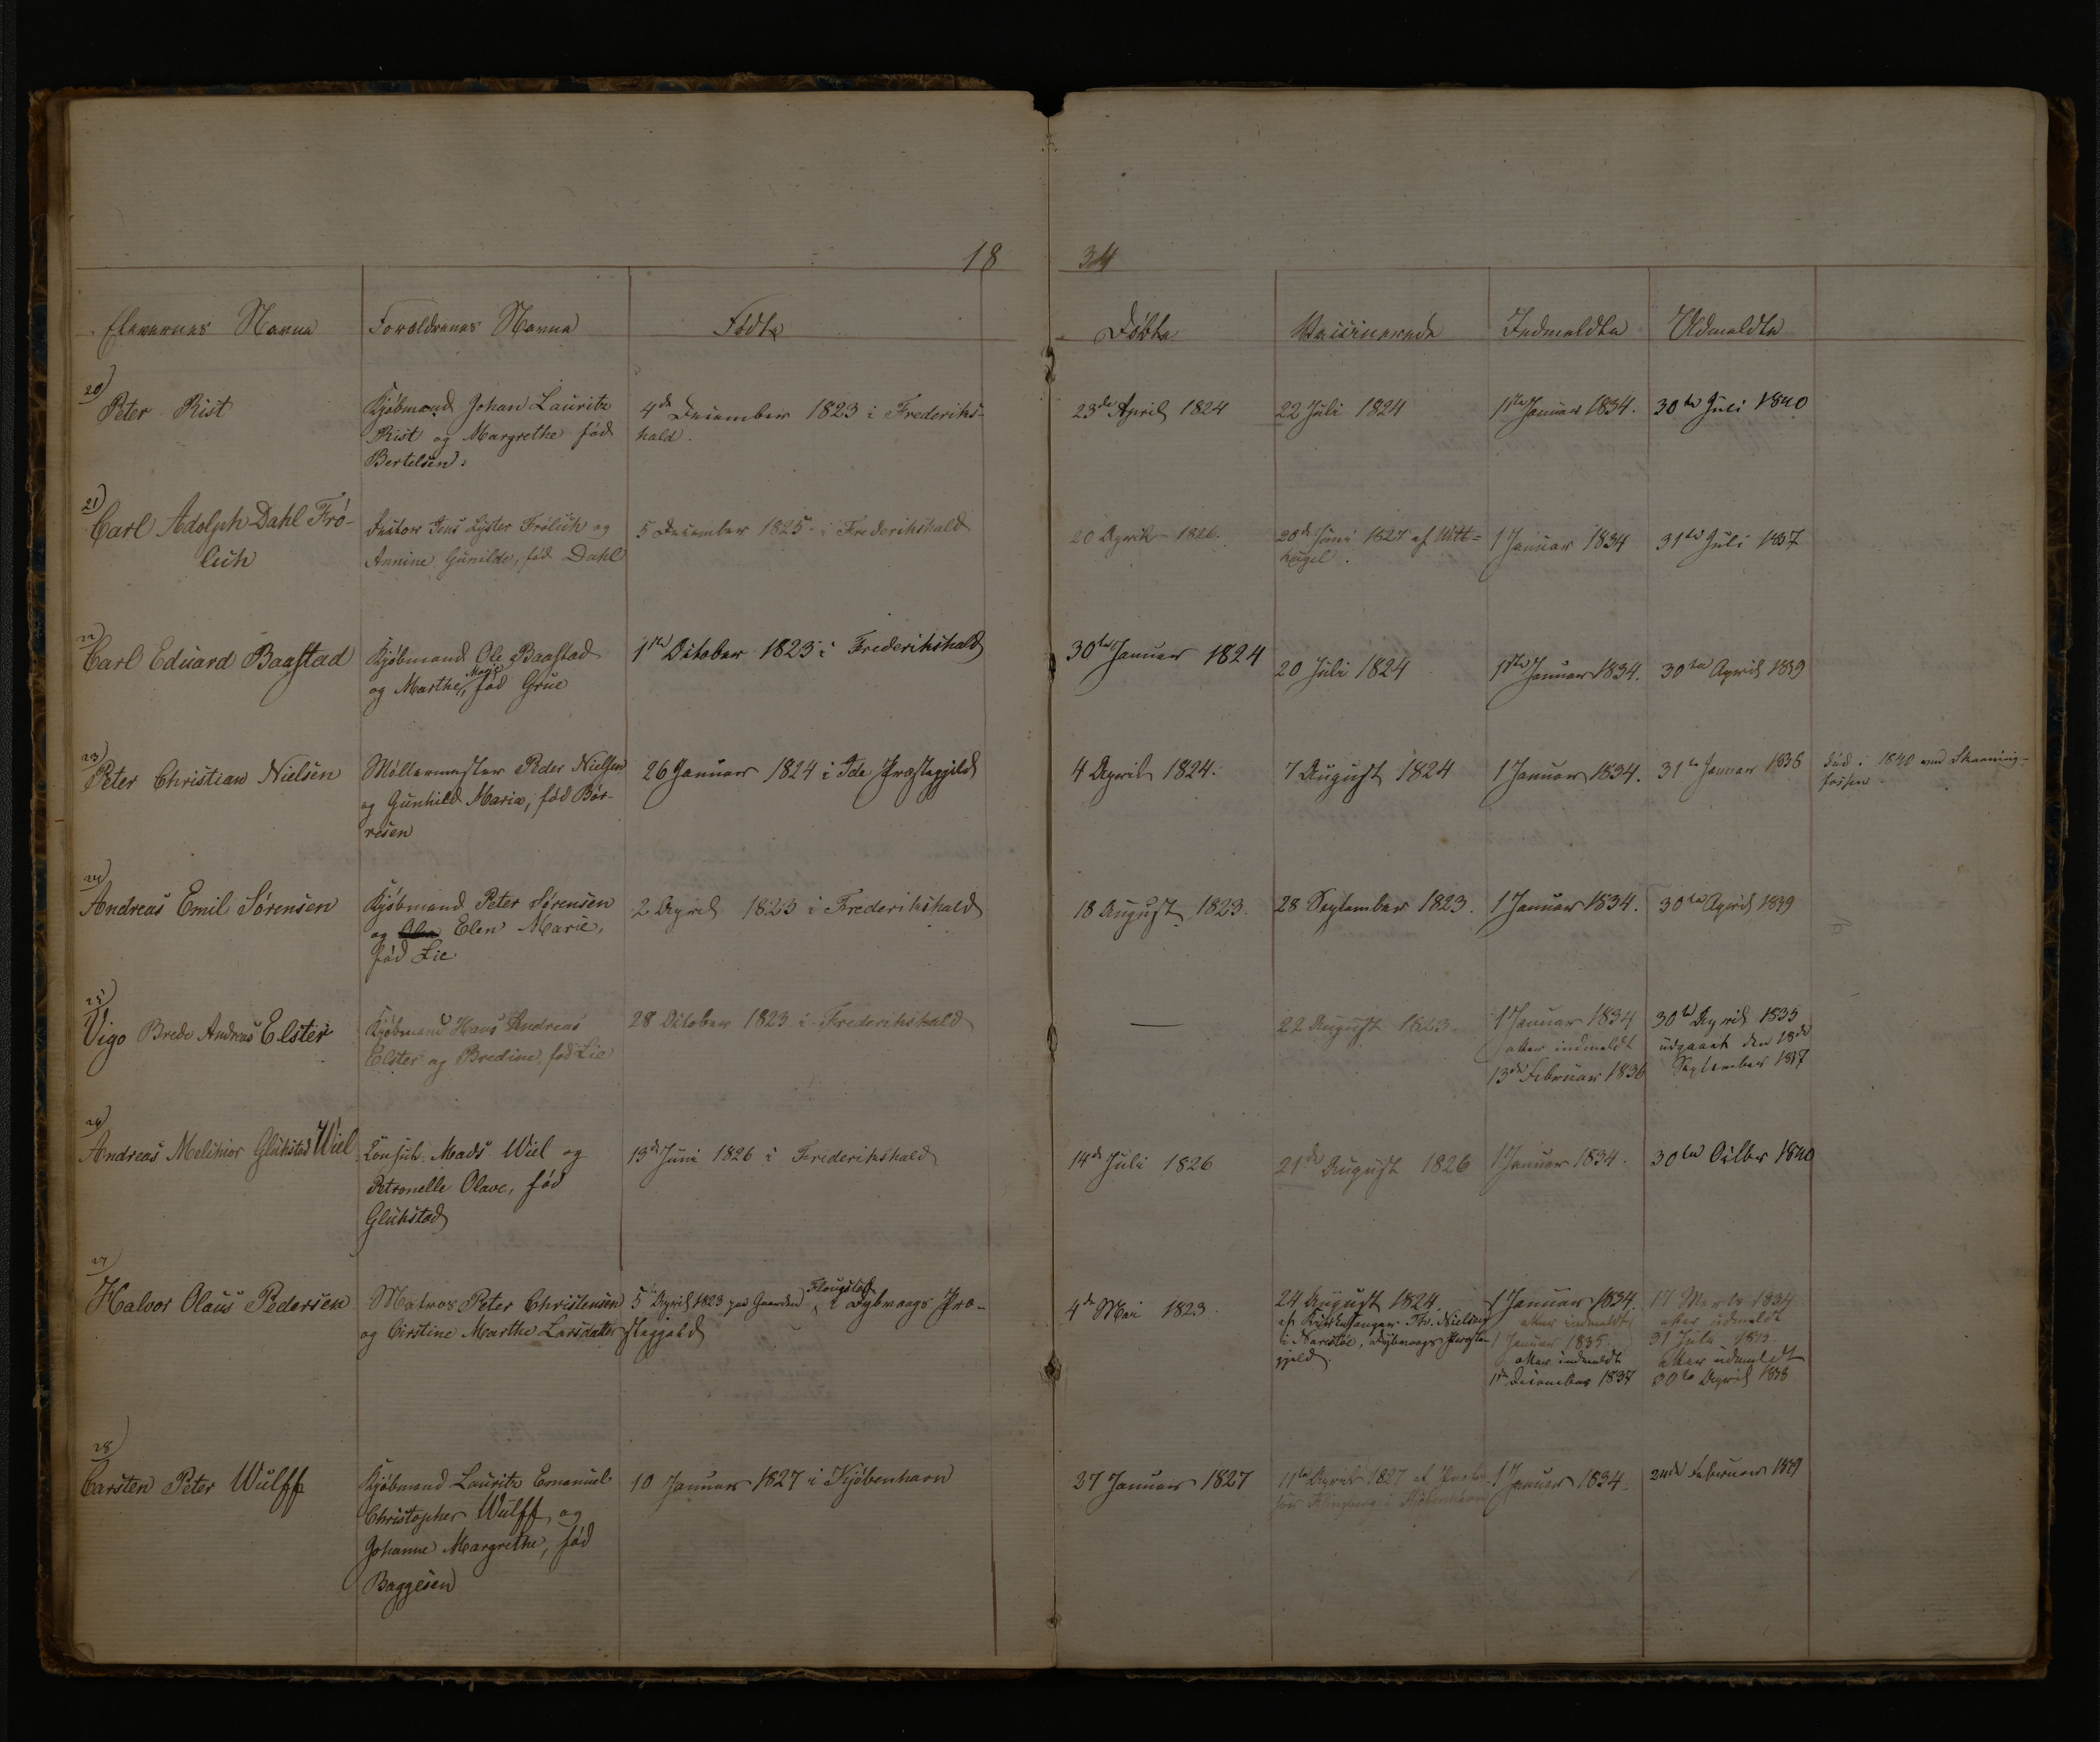 18 34
Elevernes Navne Forældrenes Navne Fødte Døbte Vaccinerede Indmeldte Udmeldte
20)
Peter Rist Kjøbmand Johan Lauritz 4de December 1823 i Frederiks- 23de April 1824 22 Juli 1824 1ste Januar 1834. 30te Juli 1840
Rist og Margrethe fød hald.
Bertelsen.
21)
Carl Adolph Dahl Frö- Jens Lyster Frölich og 5 December 1825 i Frederikshald 20 April 1826. 20de Juni 1827 af Witt= 1 Januar 1834 31te Juli 1837
lich Annine Gunilde, fød Dahl kugel.
22)
Carl Eduard Baastad Kjøbmand Ole Baastad 1ste October 1823 i Frederikshald 30te Januar 1824 20 Juli 1824 1ste Januar 1834. 30te April 1839
og Marthe, Marie fød Grue
23)
Peter Christian Nielsen Møllermester Peder Nielsen 26 Januar 1824 i Ide Præstegjeld 4 April 1824. 7 August 1824 1 Januar 1834. 31te Januar 1836 død i 1840 ved Skanning-
og Gunhild Maria, fød Bör- fossen.
resen
24)
Andreas Emil Sörensen Kjøbmand Peter Sörensen 2 April 1823 i Frederikshald 18 August 1823. 28 September 1823. 1 Januar 1834. 30te April 1839
og Elen Marie,
fød Lie
25)
Vigo Brede Andreas Elster Kjøbmand Hans Andreas 28 October 1823 i Frederikshald — 22 August 1823. 1 Januar 1834 30te April 1835
Elster og Bredine, fød Lie atter indmeldt udgaaet den 18de
13de Februar 1836 September 1837
26)
Andreas Melchior Glükstad Wiel Consul Mads Wiel og 13de Juni 1826 i Frederikshald 14de Juli 1826 21de August 1826 1 Januar 1834. 30te Octbr 1840
Petronelle Olave, fød
Glükstad
27)
Halvor Olaus Pedersen Matros Peter Christensen 5te April 1823 paa Gaarden i Dybvaags Præ- 4de Mai 1823. 24 August 1824. 1 Januar 1834. 17 Marts 1834
og Cirstine Marthe Larsdatter stegjeld af Kirkesanger Th. Nielsen atter indmeldt atter udmeldt
i Narestöe, Dybvaags Præste- 1 Januar 1835. 31 Juli
gjeld. atter indmeldt atter udmeldt
1ste December 1837 30te April 1838
28)
Carsten Peter Wulff Kjøbmand Lauritz Emanuel 10 Januar 1827 i Kjøbenhavn 27 Januar 1827 11te April 1827 af Profes- 1 Januar 1834. Februar 1839
Christopher Wulff og sor Klingberg i Kjøbenhavn
Johanne Margrethe, fød
Baggesen